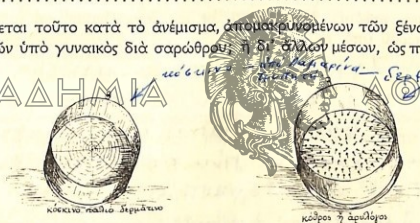 εται τοῦτο κατὰ τὸ ἀνέμισμα, ἀπομακρυνομένων τῶν ξένω
ῶν ὑπὸ γυναικὸς διὰ σαρώθρου; ἢ δι' ἄλλων μέσων, ὡς π
κόσκινο
ΑΔΗΜΙΑ ΑΘ
κόσκινο παλιὸ δερμάτινο
κόθρος ἢ ἀρυλόγος